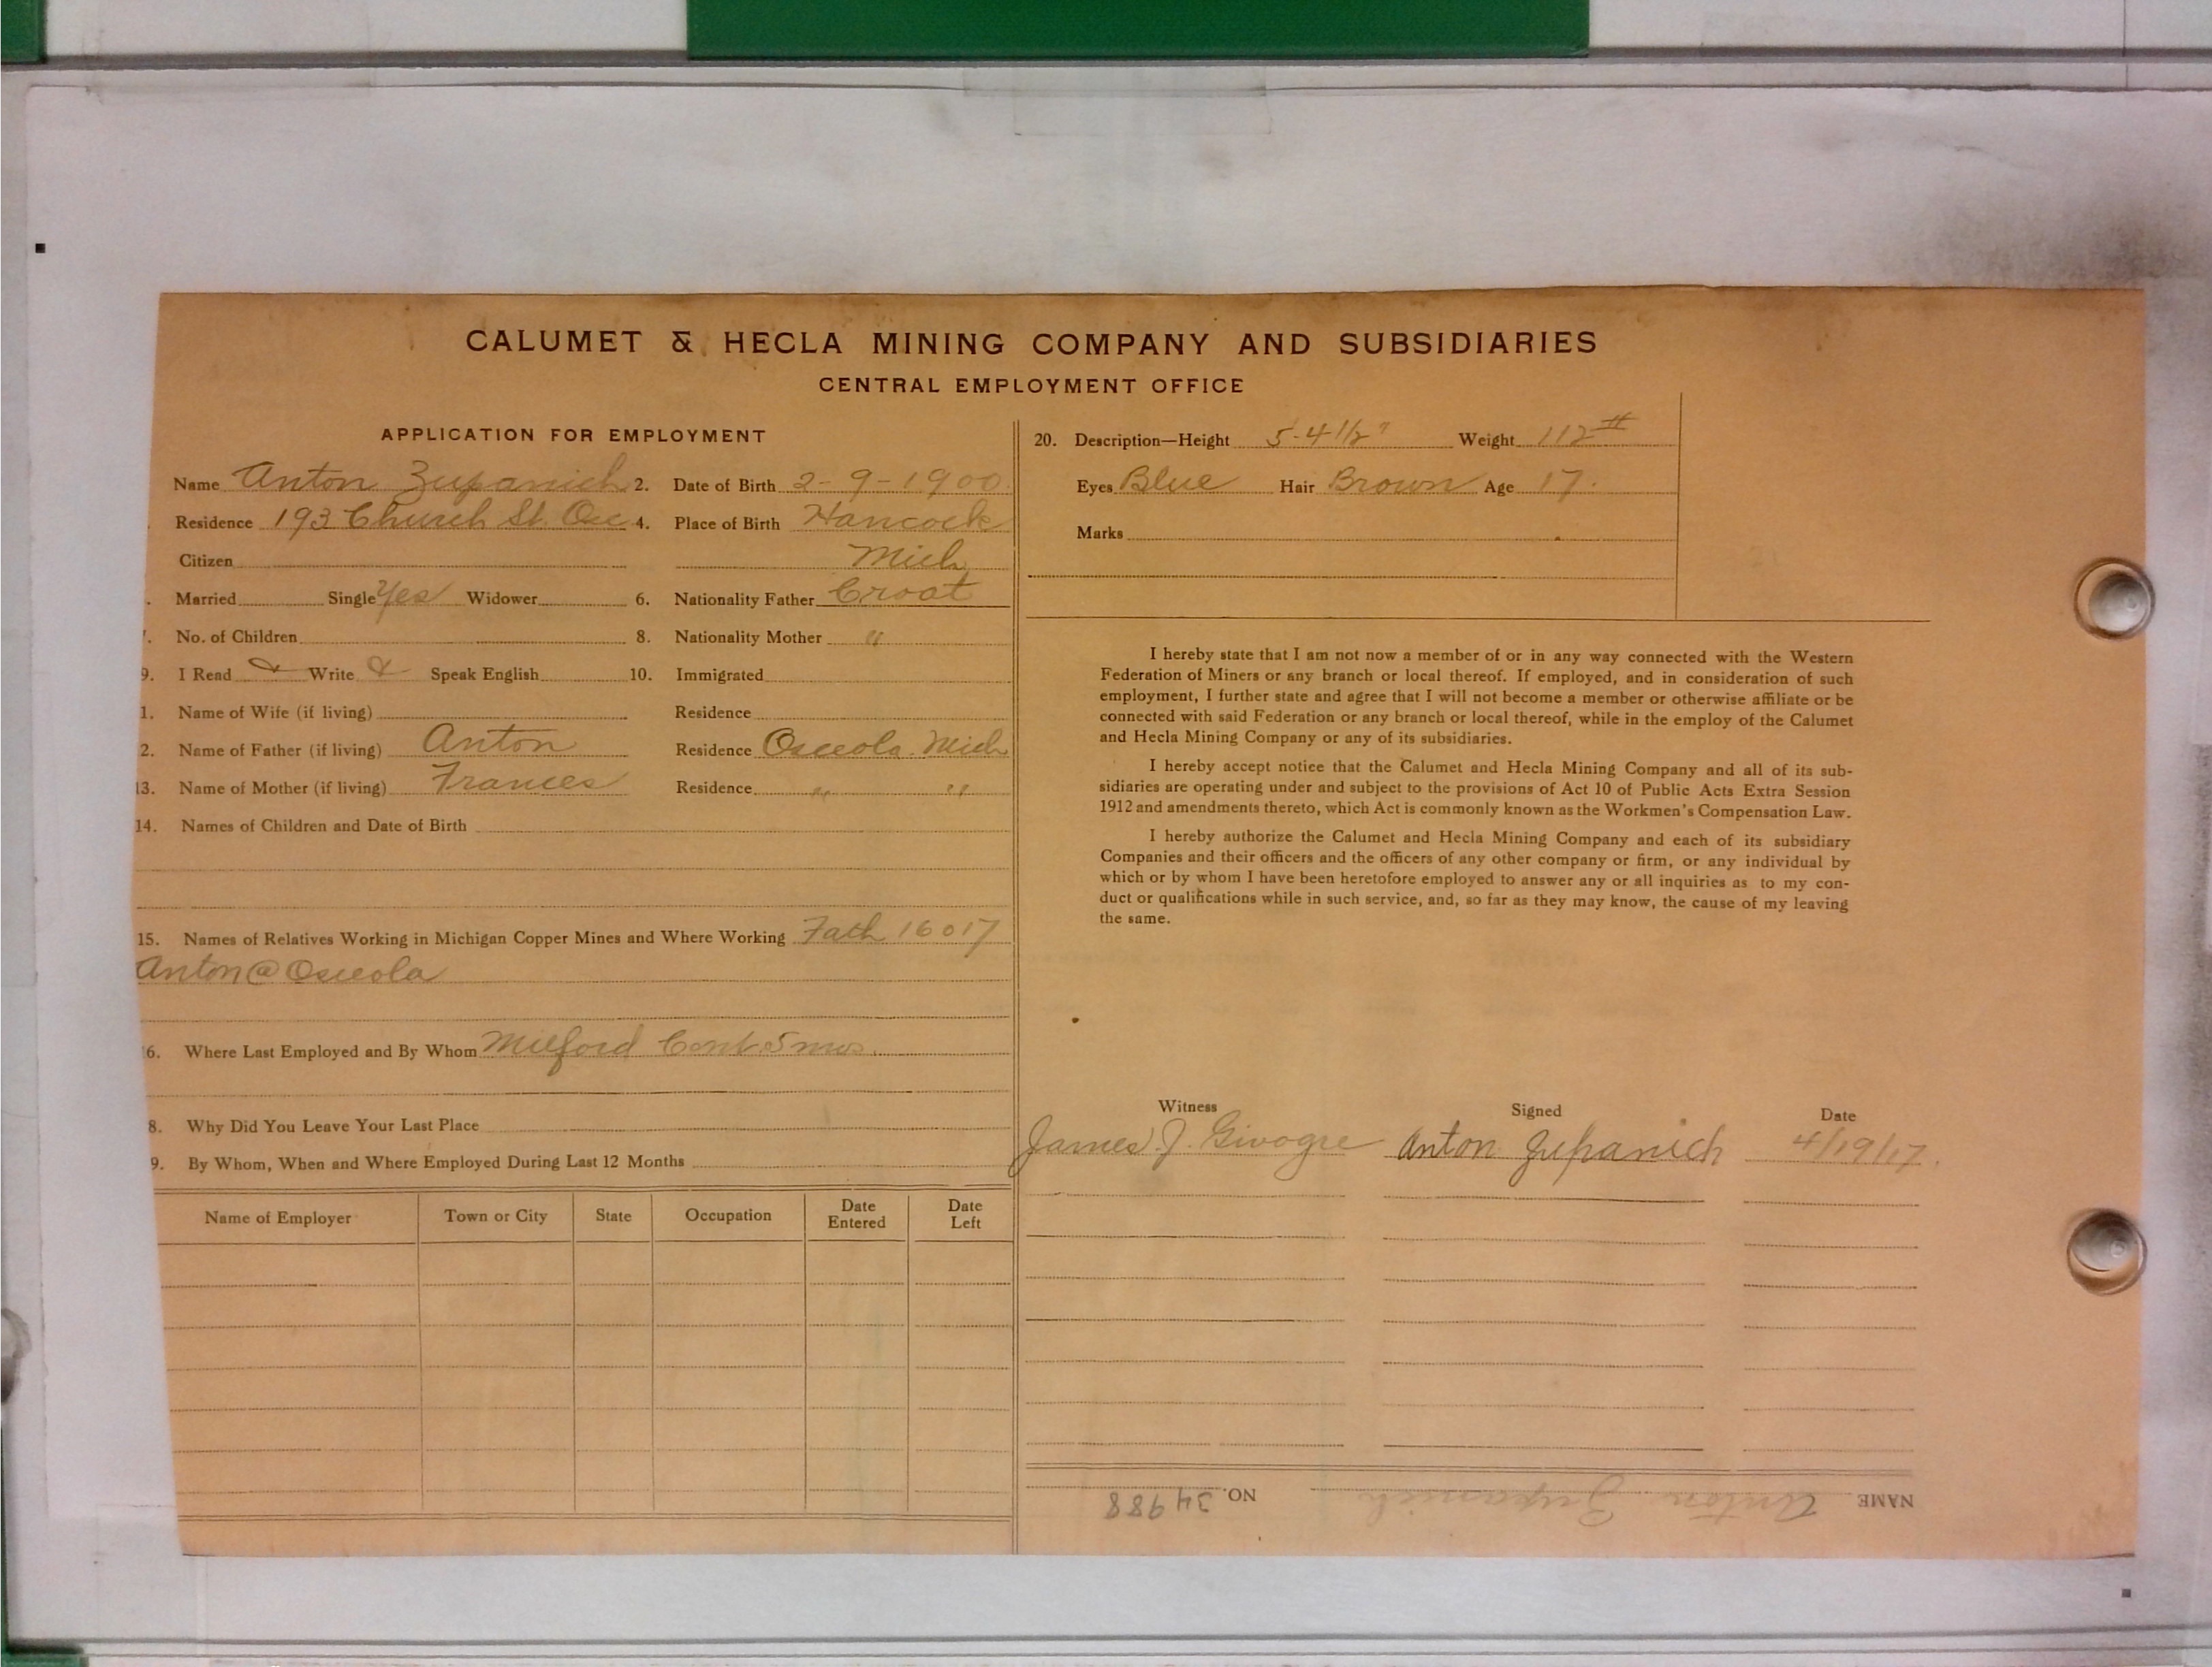 CALUMET & HECLA MINING COMPANY AND SUBSIDIARIES
CENTRAL EMPLOYMENT OFFICE
APPLICATION FOR EMPLOYMENT
Name Anton Zupanich 2. Date of Birth 2-9-1900
Residence 193 Church St. Osc 4. Place of Birth Hancock
Citizen Mich
Married Single Yes Widower 6. Nationality Father Croat
No. of Children 8. Nationality Mother "
9. I Read Write & Speak English 10. Immigrated
1. Name of Wife (if living) Residence
2. Name of Father (if living) Anton Residence Osceola Mich
13. Name of Mother (if living) Frances Residence " "
14. Names of Children and Date of Birth
15. Names of Relatives Working in Michigan Copper Mines and Where Working Fath 16017
Anton @ Osceola
6. Where Last Employed and By Whom Milford Cont. 5 mos.
8. Why Did You Leave Your Last Place
9. By Whom, When and Where Employed During Last 12 Months
Name of Employer Town or City State Occupation Date Entered Date Left
20. Description—Height 5-4 1/2" Weight 112 #
Eyes Blue Hair Brown Age 17.
Marks
I hereby state that I am not now a member of or in any way connected with the Western
Federation of Miners or any branch or local thereof. If employed, and in consideration of such
employment, I further state and agree that I will not become a member or otherwise affiliate or be
connected with said Federation or any branch or local thereof, while in the employ of the Calumet
and Hecla Mining Company or any of its subsidiaries.
I hereby accept notice that the Calumet and Hecla Mining Company and all of its sub-
sidiaries are operating under and subject to the provisions of Act 10 of Public Acts Extra Session
1912 and amendments thereto, which Act is commonly known as the Workmen's Compensation Law.
I hereby authorize the Calumet and Hecla Mining Company and each of its subsidiary
Companies and their officers and the officers of any other company or firm, or any individual by
which or by whom I have been heretofore employed to answer any or all inquiries as to my con-
duct or qualifications while in such service, and, so far as they may know, the cause of my leaving
the same.
Witness Signed Date
James J. Givogre Anton Zupanich 4/19/17.
NAME Anton Zupanich NO. 34988